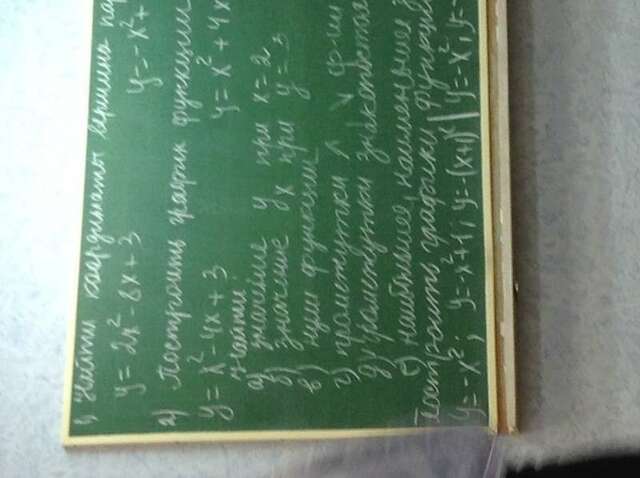 1) Найти координаты вершина пар
y = 2x² - 8x + 3 y = -x² +
2) Построить график функции
y = x² - 4x + 3 y = x² + 4x
Найти:
а) значение y при x = 2
б) значение x при y = 3
в) нули функции
г) промежутки ↗ ↘ ф-ии
д) промежутки знакопостоя
е) наибольшее, наименьшее з
Построить графики функции
y = -x²; y = -x² + 1; y = -(x+1)² | y = -x², y = -